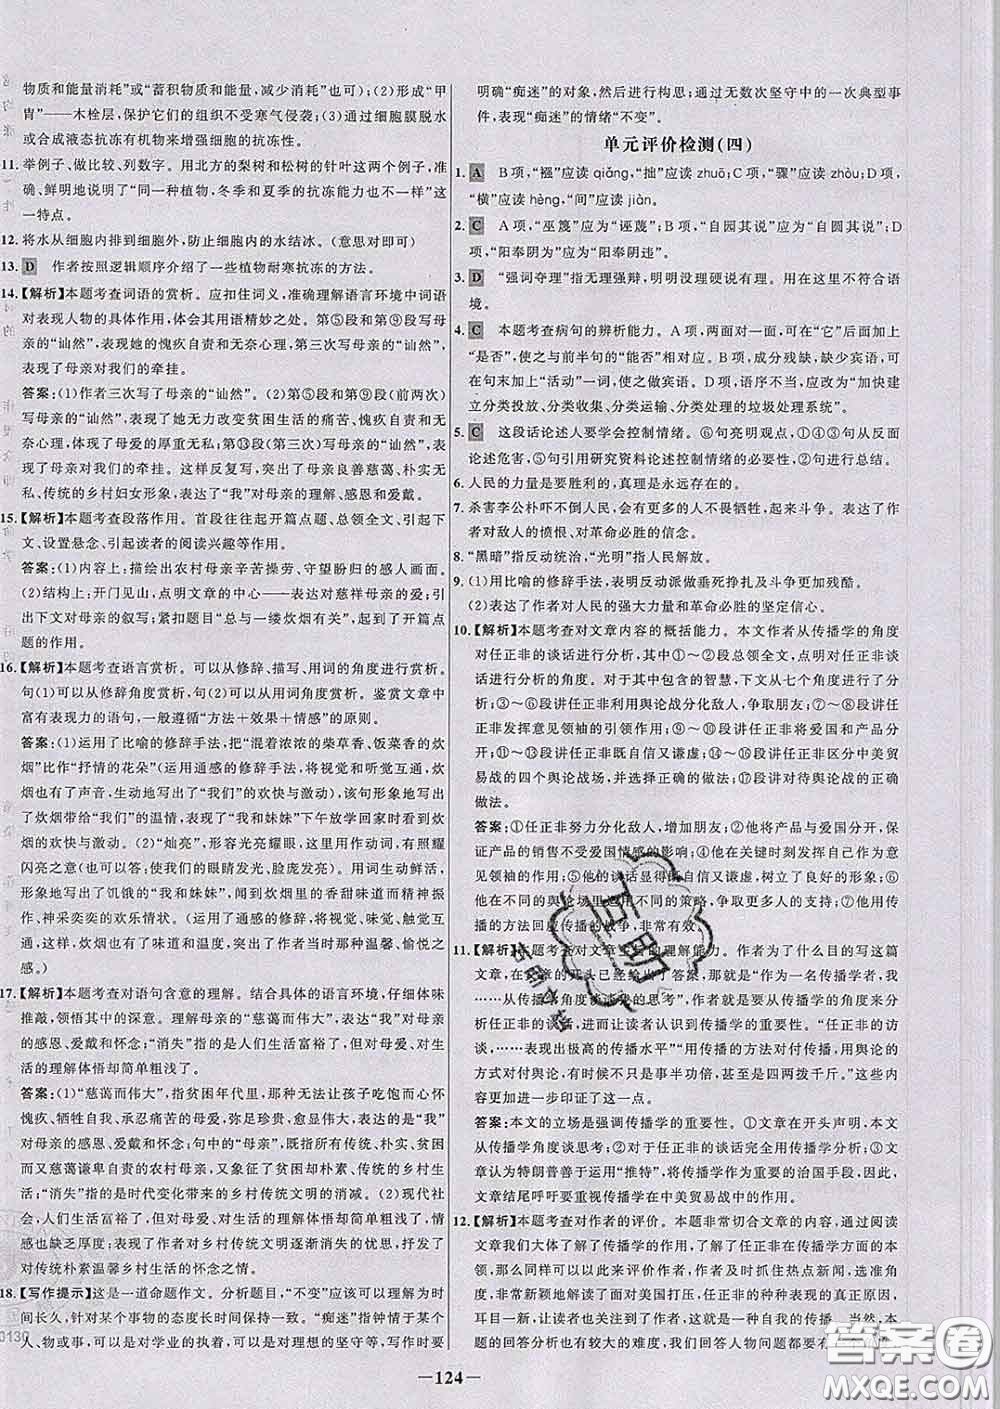 物质和能量消耗”或“蓄积物质和能量,减少消耗”也可);(2)形成“甲
胄”——木栓层,保护它们的组织不受寒气侵袭;(3)通过细胞膜脱水
或合成液态抗冻有机物来增强细胞的抗冻性。
11. 举例子、做比较、列数字。用北方的梨树和松树的针叶这两个例子,准
确、鲜明地说明了“同一种植物,冬季和夏季的抗冻能力也不一样”这
一特点。
12. 将水从细胞内排到细胞外,防止细胞内的水结冰。(意思对即可)
13. D 作者按照逻辑顺序介绍了一些植物耐寒抗冻的方法。
14.【解析】本题考查词语的赏析。应扣住词义,准确理解语言环境中词语
对表现人物的具体作用,体会其用语精妙之处。第⑤段和第⑨段写母
亲的“讪然”,表现她的愧疚自责和无奈心理,第三次写母亲的“讪然”,
表现了母亲对我们的牵挂。
答案:(1)作者三次写了母亲的“讪然”。(2)第⑤段和第⑨段(前两次)
写母亲的“讪然”,表现了她无力改变贫困生活的痛苦、愧疚自责和无
奈心理,体现了母爱的厚重无私;第⑬段(第三次)写母亲的“讪然”,表
现了母亲对我们的牵挂。这样反复写,突出了母亲良善慈蔼、朴实无
私、传统的乡村妇女形象,表达了“我”对母亲的理解、感恩和爱戴。
15.【解析】本题考查段落作用。首段往往起开篇点题、总领全文、引起下
文、设置悬念、引起读者的阅读兴趣等作用。
答案:(1)内容上:描绘出农村母亲辛苦操劳、守望盼归的感人画面。
(2)结构上:开门见山,点明文章的中心——表达对慈祥母亲的爱;引
引出下文对母亲的叙写;紧扣题目“总与一缕炊烟有关”,起到了开篇点
题的作用。
16.【解析】本题考查语言赏析。可以从修辞、描写、用词的角度进行赏析。
句(1)可以从修辞角度赏析,句(2)可以从用词角度赏析。鉴赏文章中
富有表现力的语句,一般遵循“方法+效果+情感”的原则。
答案:(1)运用了比喻的修辞手法,把“混着浓浓的柴草香、饭菜香的炊
烟”比作“抒情的花朵”(运用通感的修辞手法,将视觉和听觉互通,炊
烟也有了声音,生动地写出了“我们”的欢快与激动),该句形象地写出
了炊烟带给“我们”的温情,体现了“我和妹妹”下午放学回家时看到炊烟
的欢快与激动。(2)“灿亮”,形容光亮耀眼,在文章中的意思为:有照耀
闪亮之意(也可答成:使我们的眼睛发光、脸庞发亮)。用词生动鲜活,
形象地写出了饥饿的“我和妹妹”,闻到炊烟里的香甜味道而精神振
作、神采奕奕的欢乐情状。(运用了通感的修辞手法,将视觉、味觉、触觉互
通,这样,炊烟也有了味道和温度,突出了作者当时那种温馨、愉悦之
感。)
17.【解析】本题考查对语句含意的理解。结合具体的语言环境,仔细体味
推敲,领悟其中的深意。理解母亲的“慈蔼而伟大”,表现了“我”对母亲
的感恩、爱戴和尊重;“消失”指的是人们生活富裕了,但对母爱、对生
活的理解体悟却简单粗浅了。
答案:(1)“慈蔼而伟大”,指贫困年代里,那种无法让孩子吃饱吃好的
愧疚、牺牲自我、承忍痛苦的母爱,弥足珍贵,具有普遍性,表达的是“我”
对母亲的感恩、爱戴和尊重;句中的“母亲”,具有所有传统、朴实、慈爱
而又慈蔼谦卑自责的农村母亲,這里突出了昔日贫困却朴素、温馨的乡村生
活;“消失”指的是时代变化带来的乡村传统文明的消减。(2)现代社
会,人们生活富裕了,但对母爱、对生活的理解体悟却简单粗浅了,情
感也缺乏厚度;表现了作者对乡村传统文明逐渐消失的忧思,抒发了
对传统朴素温馨乡村生活的怀恋之情。
18.【写作提示】这是一道命题作文。分析题目,“不变”应该可以理解为时
间长久,针对某个事物的态度长时间保持一致。“痴迷”指钟情于某个
人、物或事,可以是对学业的执着,可以是对理想的坚守等,写作时要
明确“痴迷”的对象,然后进行构思;通过无数次坚守中的一次典型事
件,表现“痴迷”的情绪“不变”。
单元评价检测(四)
1. A B项,“襁”应读qiǎng,“拙”应读zhuō;C项,“骤”应读zhòu;D项,
“横”应读hèng,“间”应读jiàn。
2. C A项,“巫蔑”应为“诬蔑”;B项,“自园其说”应为“自圆其说”;D
项,“阳奉阴为”应为“阳奉阴违”。
3. D “强词夺理”指无理强辩,明明没理硬说有理。用在这里不符合语
境。
4. C 本题考查病句的辨析能力。A项,两面对一面,可在“它”后面加上
“是否”,使之与前半句的“能否”相对应。B项,成分残缺,缺少宾语,可
在句末加上“活动”一词,使之做宾语。D项,语序不当,应改为“加快建
立分类投放、分类收集、分类运输、分类处理的垃圾处理系统”。
5. C 这段话论述人要学会控制情绪。⑥句亮明观点,①④③句从反面
论述危害,⑤句引用研究资料论述控制情绪的必要性,②句进行总结。
6. 人民的力量是要胜利的,真理是永远存在的。
7. 杀害李公朴吓不倒人民,会有更多的人不畏牺牲,起来斗争。表达了作
者对敌人的愤恨、对革命必胜的信念。
8. “黑暗”指反动统治,“光明”指人民解放。
9. (1)用比喻的修辞手法,表明反动派做垂死挣扎及斗争更加残酷。
(2)表达了作者对人民的强大力量和革命必胜的坚定信心。
10.【解析】本题考查对文章内容的概括能力。本文作者从传播学的角度
对任正非的谈话进行分析,其中①~②段总领全文,点明对任正非谈
话进行分析的角度。对于其中包含的智慧,下文从七个角度进行分
析;③~⑥段讲任正非利用舆论战分化敌人,争取朋友;⑦~⑧段讲任
正非发挥意见领袖的引领作用;⑨~⑩段讲任正非将爱国和产品分
开;⑪~⑬段讲任正非既自信又谦虚;⑭~⑯段讲任正非区分中美贸
易战的四个舆论战场,并选择正确的做法;⑰段讲对待舆论战的正确
做法。
答案:①任正非努力分化敌人,增加朋友;②他将产品与爱国分开,保
证产品的销售不受爱国情感的影响;④他在关键时刻发挥了自己意
见领袖的作用;⑤他的谈话显得既自信又谦虚,树立了良好的形象;⑥
他在不同的舆论场里选用不同的策略,争取更多人的支持;⑦他用传
播的方法回应传播的战争,非常有效。
11.【解析】本题考查对文章主旨的理解能力。作者为什么目的写这篇
文章,在文章的开头已经给出了答案,那就是“作为一名传播学者,我
……从传播学角度谈谈我的思考”,作者要从传播学的角度来分
析任正非的谈话,进而让读者认识到传播学的重要性。“任正非的访
谈,……表现出极高的传播水平”“用传播的方法对付传播,用舆论的
方式对付舆论,这样才可能事半功倍,甚至是四两拨千斤。”这些内容
更进一步印证了这一点。
答案:本文的立场是传播学的重要性。①文章在开头声明,本文
从传播学角度谈思考;②对于任正非的谈话完全用传播学分析;③
文章认为特朗普善于运用“推特”,将传播学作为重要的治国手段,④
文章结尾呼吁要重视传播学在中美贸易战中的作用。
12.【解析】本题考查对作者的评价。本题非常切合文章的内容,通过阅读
文章我们大体了解了传播学的作用,了解任正非传播学方面的本
领,因此可以此来评价作者。作者及时抓住热点,传播正能量,
有新颖观点面对美国打压,任正非在各种场合表现的真正原因,
耳目一新,让读者进一步认识到传播学的作用。当然,本
题的回答分析也有较大的难度,我们回答人物问题都要有
—124—
互助
答案圈
MXQE.COM